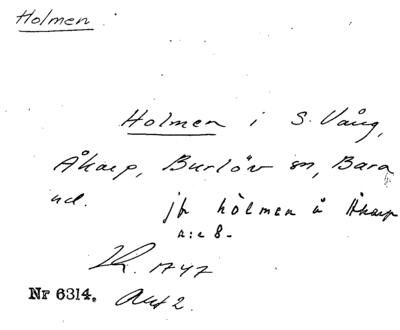 Holmen
Holmen i S. Vång,
Åkarp, Burlöv sn, Bara
hd. jfr hòlmen å Åkarp
n:o 8.
LK. 1747
Nr 6314. Akt 2.